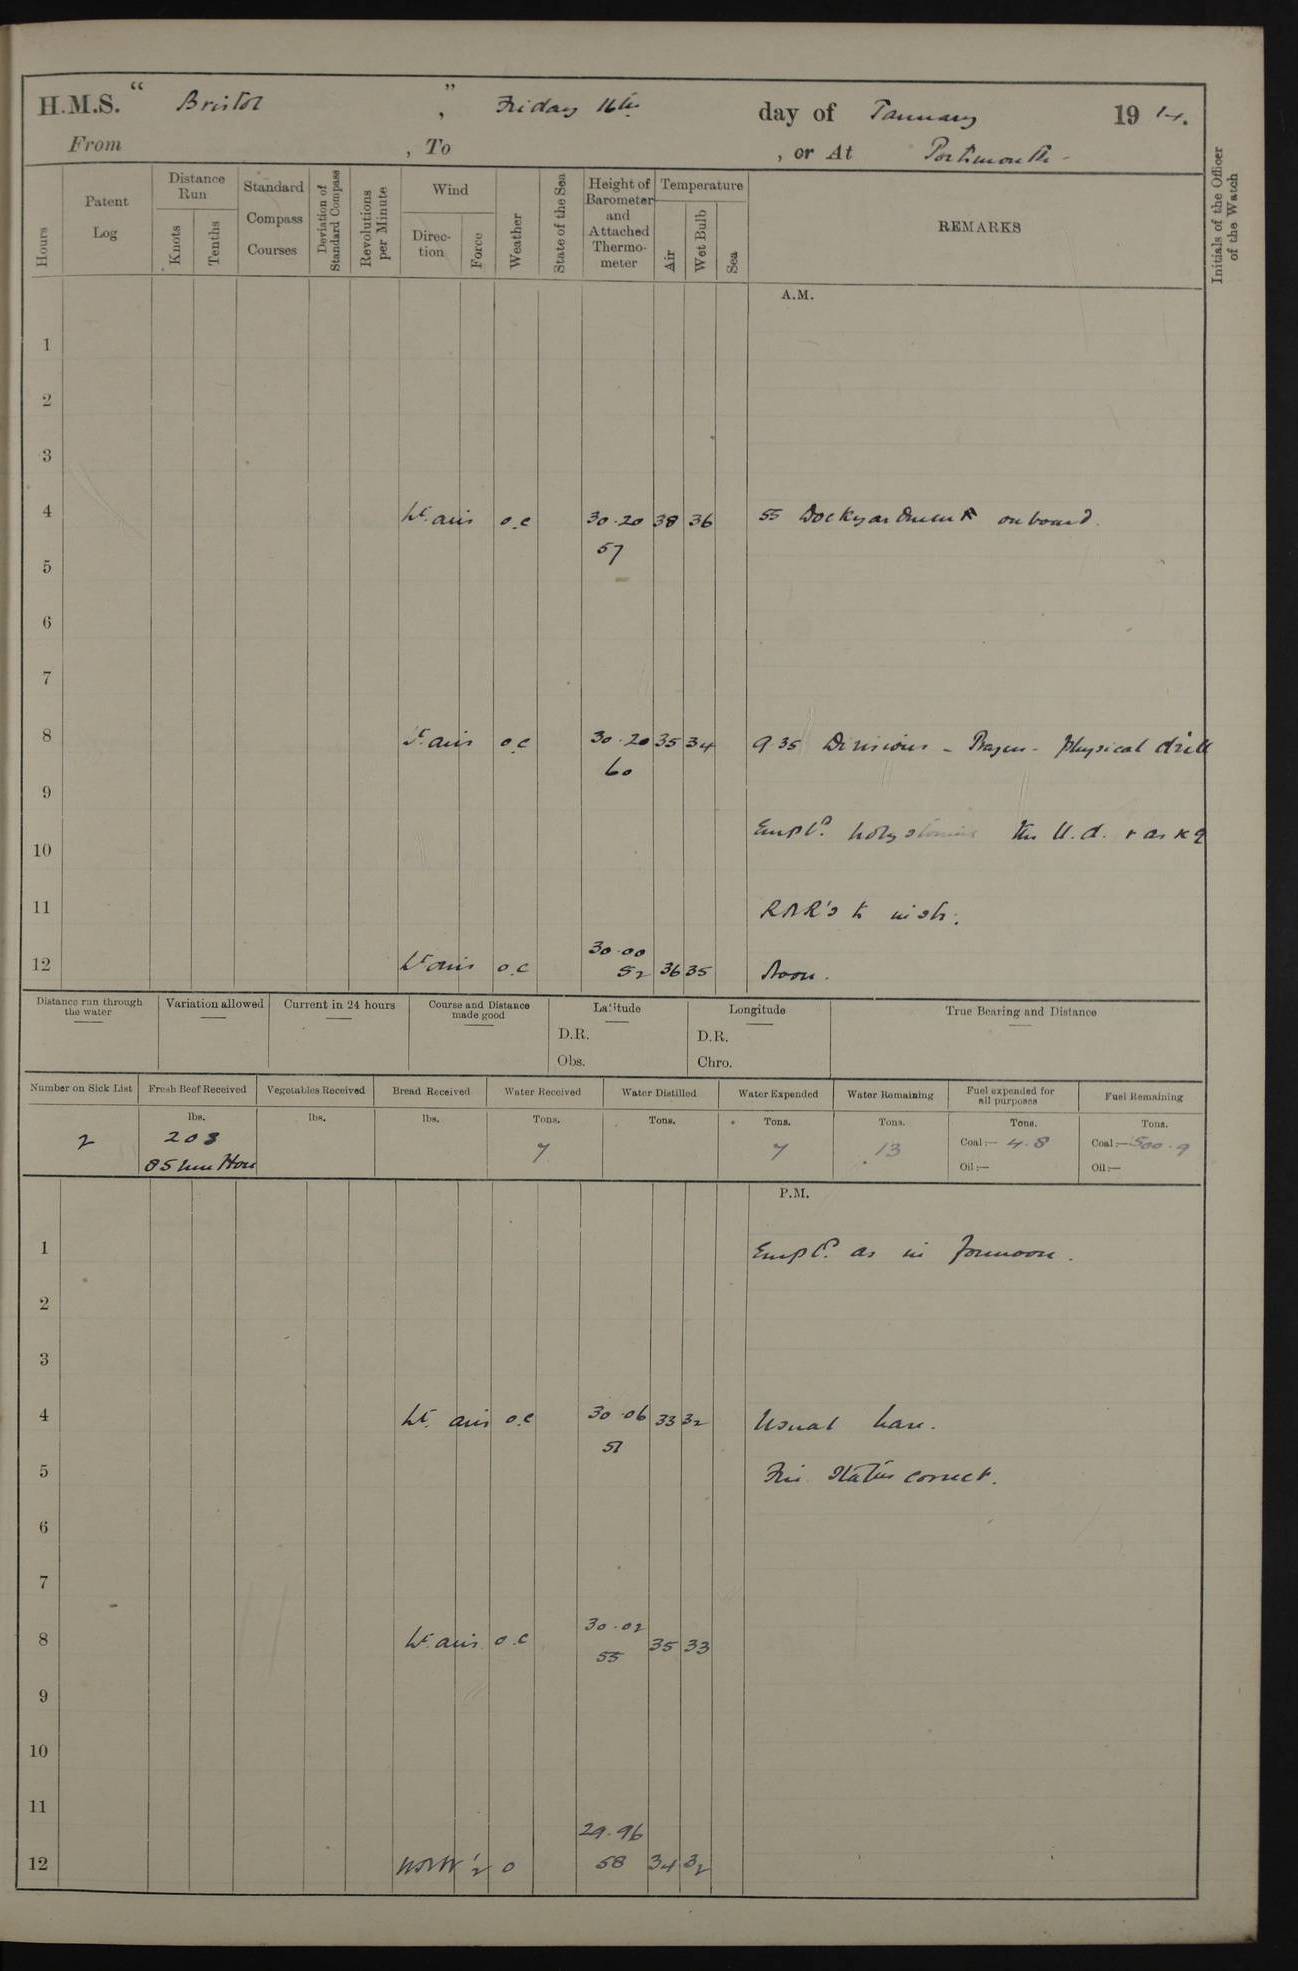 H.M.S. " Bristol ", Friday 16th day of January 1914.
From , To , or At Portsmouth -
Hours
Patent Log
Distance Run
Knots
Tenths
Standard Compass Courses
Deviation of Standard Compass
Revolutions per Minute
Wind
Direction
Force
Weather
State of the Sea
Height of Barometer and Attached Thermometer
Temperature
Air
Wet Bulb
Sea
REMARKS
Initials of the Officer of the Watch
A.M.
1
2
3
4 Lt. airs o.c 30.20 38 36 55 Dockyardmen onboard.
57
5
6
7
8 Lt. airs o.c 30.20 35 34 9.35 Divisions - Prayers - physical drill
60
9
Empld. holystoning the U.d. & as req
10
11 RNR's to
30.00
12 Lt airs o.c 52 36 35 Noon.
Distance run through the water
Variation allowed
Current in 24 hours
Course and Distance made good
Latitude
D.R.
Obs.
Longitude
D.R.
Chro.
True Bearing and Distance
Number on Sick List
Fresh Beef Received
Vegetables Received
Bread Received
Water Received
Water Distilled
Water Expended
Water Remaining
Fuel expended for all purposes
Fuel Remaining
lbs. lbs. lbs. Tons. Tons. Tons. Tons. Tons. Tons.
2 203 7 7 13 Coal:— 4.8 Coal:—500.9
85 Oil:— Oil:—
P.M.
1 Empld. as in forenoon.
2
3
4 Lt. airs o.c 30.06 33 32 Usual leave.
57
5 Fire Stations correct.
6
7
8 Lt. airs o.c 30.02 35 33
55
9
10
11
29.96
12 WNW ½ o 58 34 32